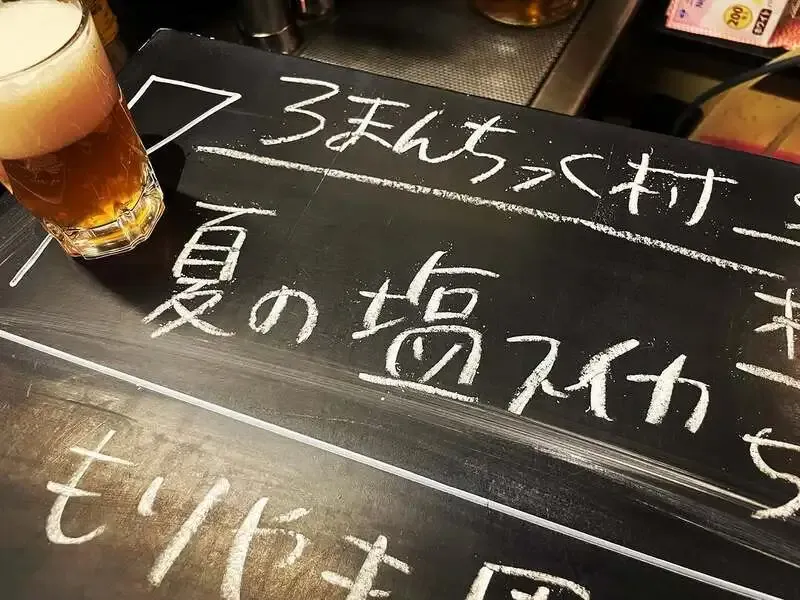 ろまんちっく村
夏の塩スイカ
もりやま園
200